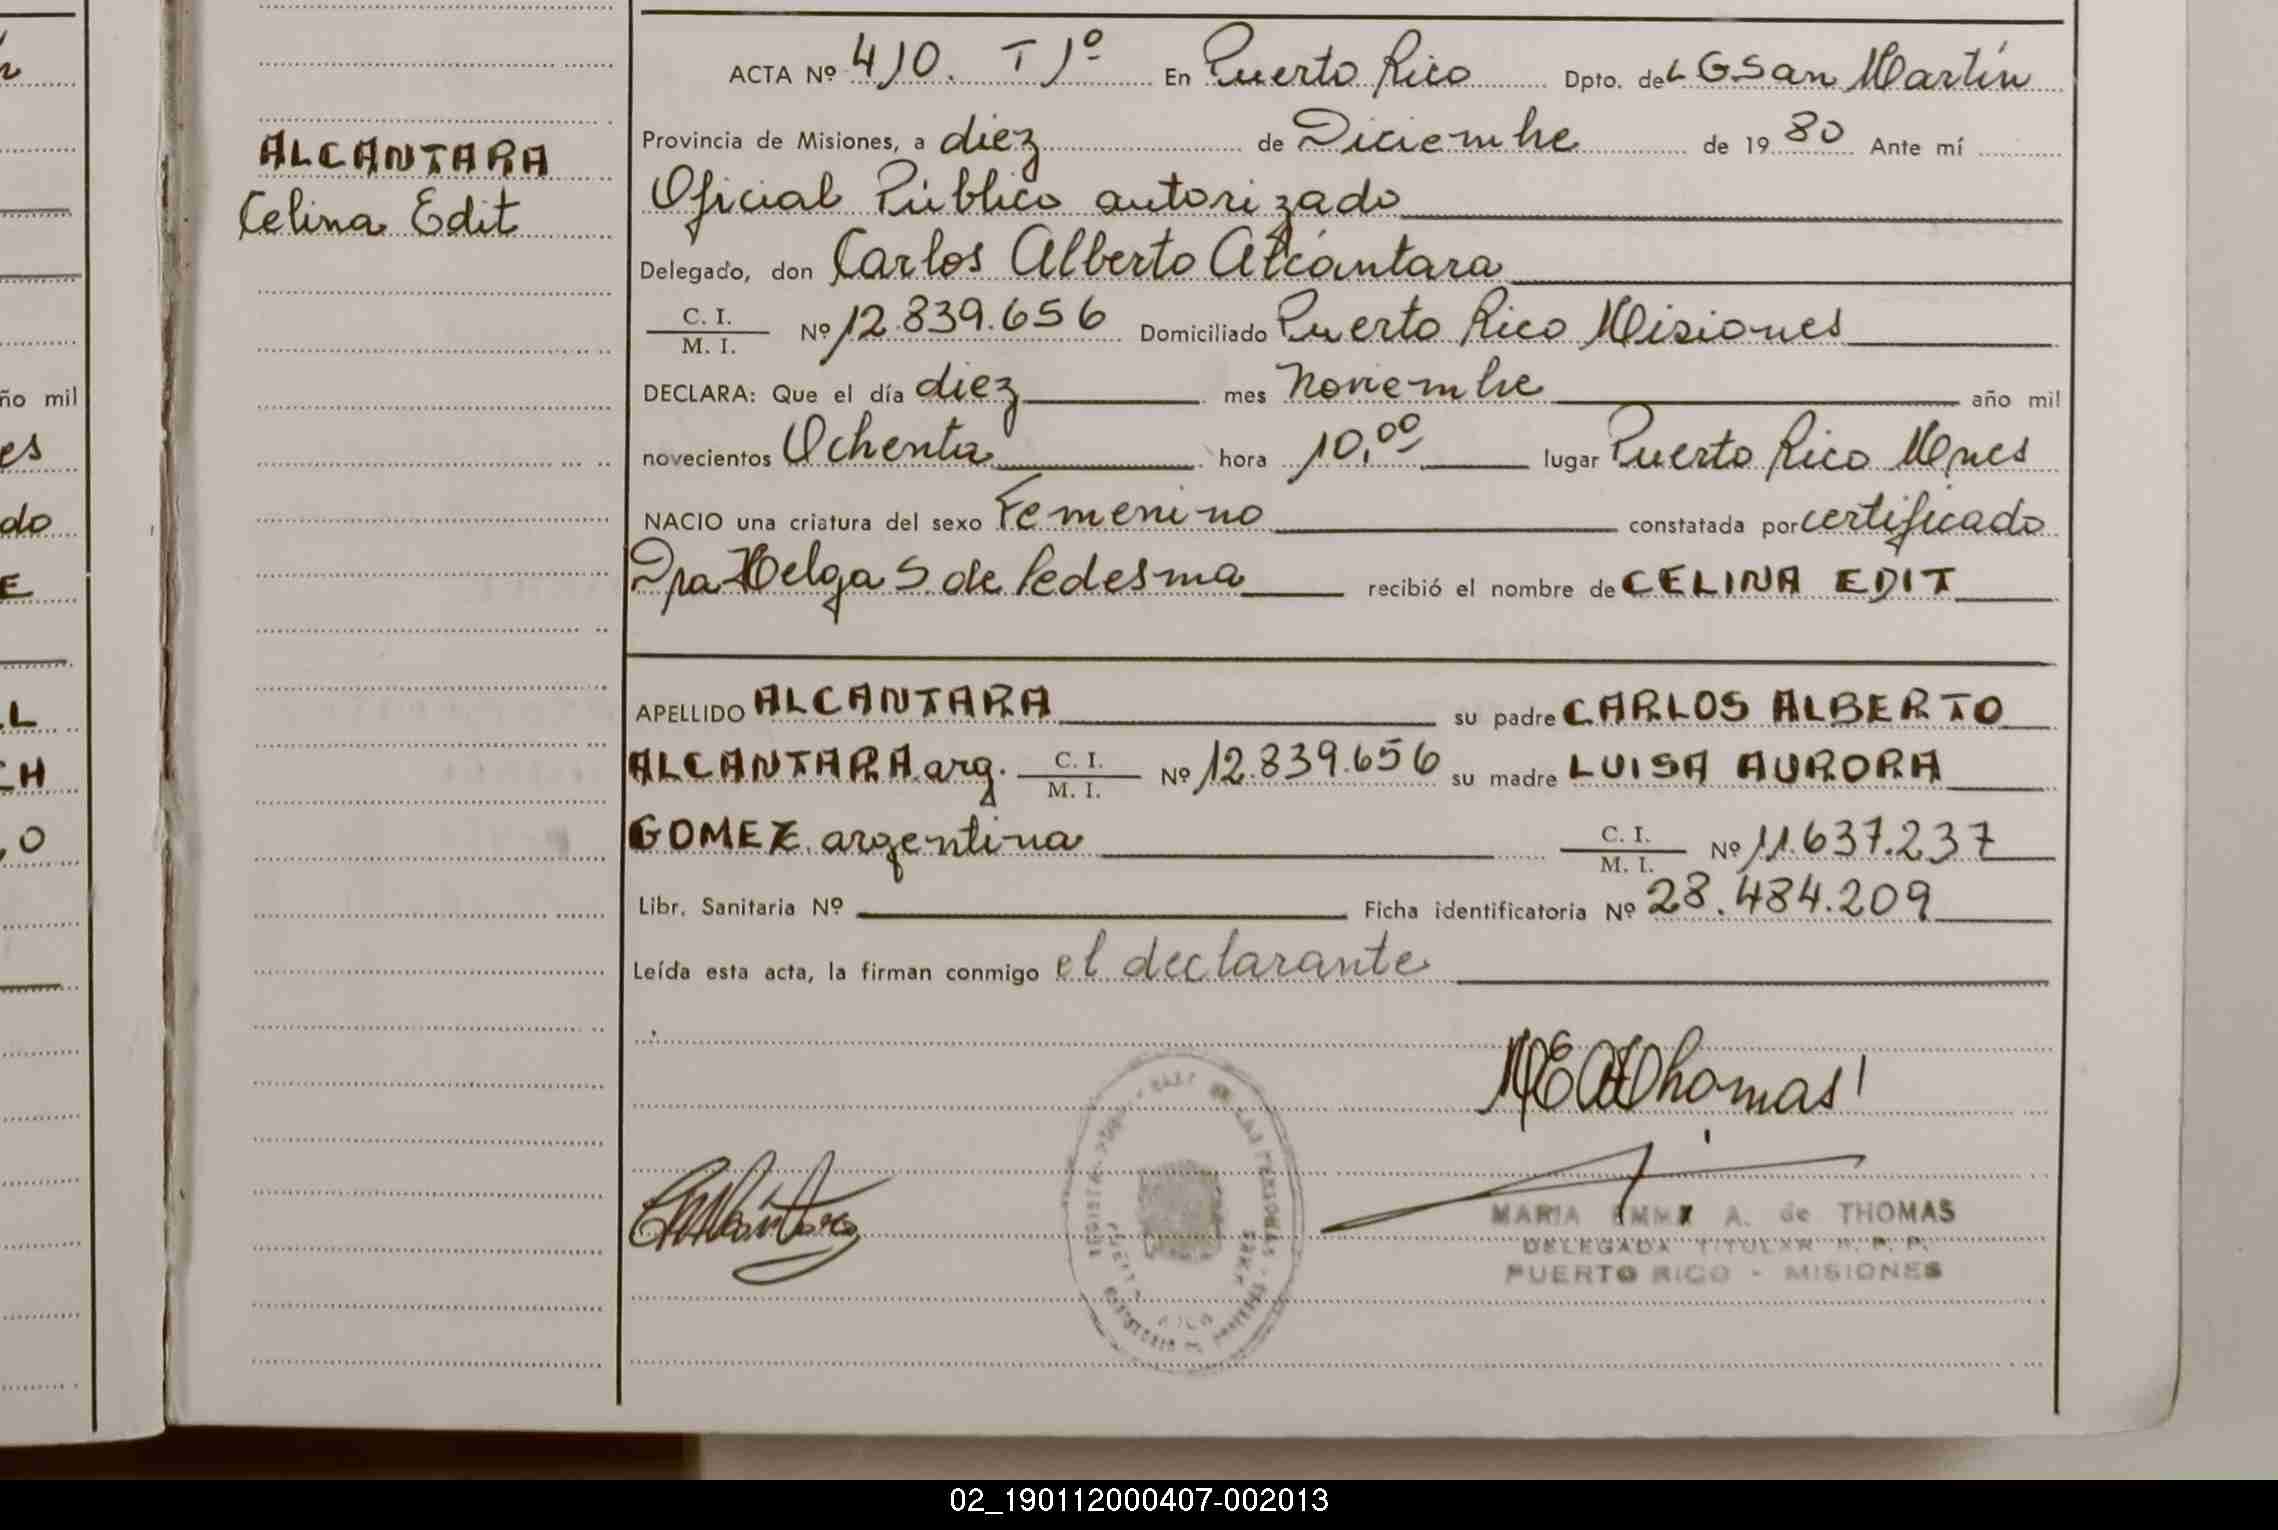 ACTA Nº 410. T 1º En Puerto Rico Dpto. de L G San Martín
Provincia de Misiones, a diez de Diciembre de 1980 Ante mí
ALCANTARA
Celina Edit
Oficial Público autorizado
Delegado, don Carlos Alberto Alcántara
C. I.
M. I.
Nº 12.839.656 Domiciliado Puerto Rico Misiones
DECLARA: Que el día diez mes Noviembre año mil
novecientos Ochenta hora 10,00 lugar Puerto Rico Mnes
NACIO una criatura del sexo Femenino constatada por certificado
Dra Helga S. de Ledesma recibió el nombre de CELINA EDIT
APELLIDO ALCANTARA su padre CARLOS ALBERTO
ALCANTARA arg. C. I. M. I. Nº 12.839.656 su madre LUISA AURORA
GOMEZ argentina C. I. M. I. Nº 11.637.237
Libr. Sanitaria Nº Ficha identificatoria Nº 28.484.209
Leída esta acta, la firman conmigo el declarante
MARIA EMMA A. de THOMAS
DELEGADA TITULAR R. P. P.
PUERTO RICO - MISIONES
ño mil
es
do
E
L
CH
O
02_190112000407-002013